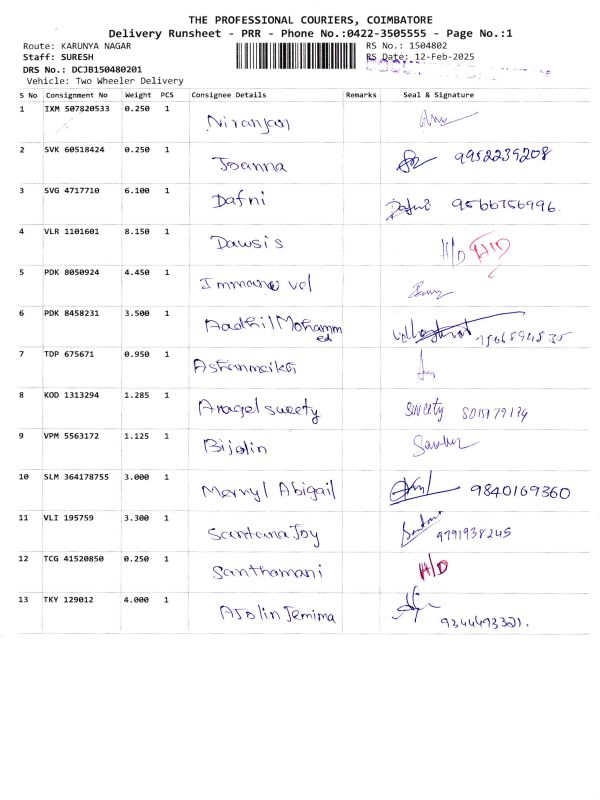 THE PROFESSIONAL COURIERS, COIMBATORE
Delivery Runsheet - PRR - Phone No.:0422-3505555 - Page No.:1
Route: KARUNYA NAGAR RS No.: 1504802
Staff: SURESH RS Date: 12-Feb-2025
DRS No.: DCJB150480201
Vehicle: Two Wheeler Delivery
S No Consignment No Weight PCS Consignee Details Remarks Seal & Signature
1 IXM 507820533 0.250 1 Niranjan
2 SVK 60518424 0.250 1 Joanna 9952239208
3 SVG 4717710 6.100 1 Dafni Dafni 9566756996.
4 VLR 1101601 8.150 1 Dawsis H/D H/D
5 PDK 8050924 4.450 1 Immanuvel
6 PDK 8458231 3.500 1 Aadhil Mohamm
ed
7 TDP 675671 0.950 1
8 KOD 1313294 1.285 1 Aragel sweety sweety
9 VPM 5563172 1.125 1 Bijolin
10 SLM 364178755 3.000 1 Merryl Abigail 9840169360
11 VLI 195759 3.300 1 Santana Joy 9791938245
12 TCG 41520850 0.250 1 Santhamani H/D
13 TKY 129012 4.000 1 AJolin Jemima 9344493321.